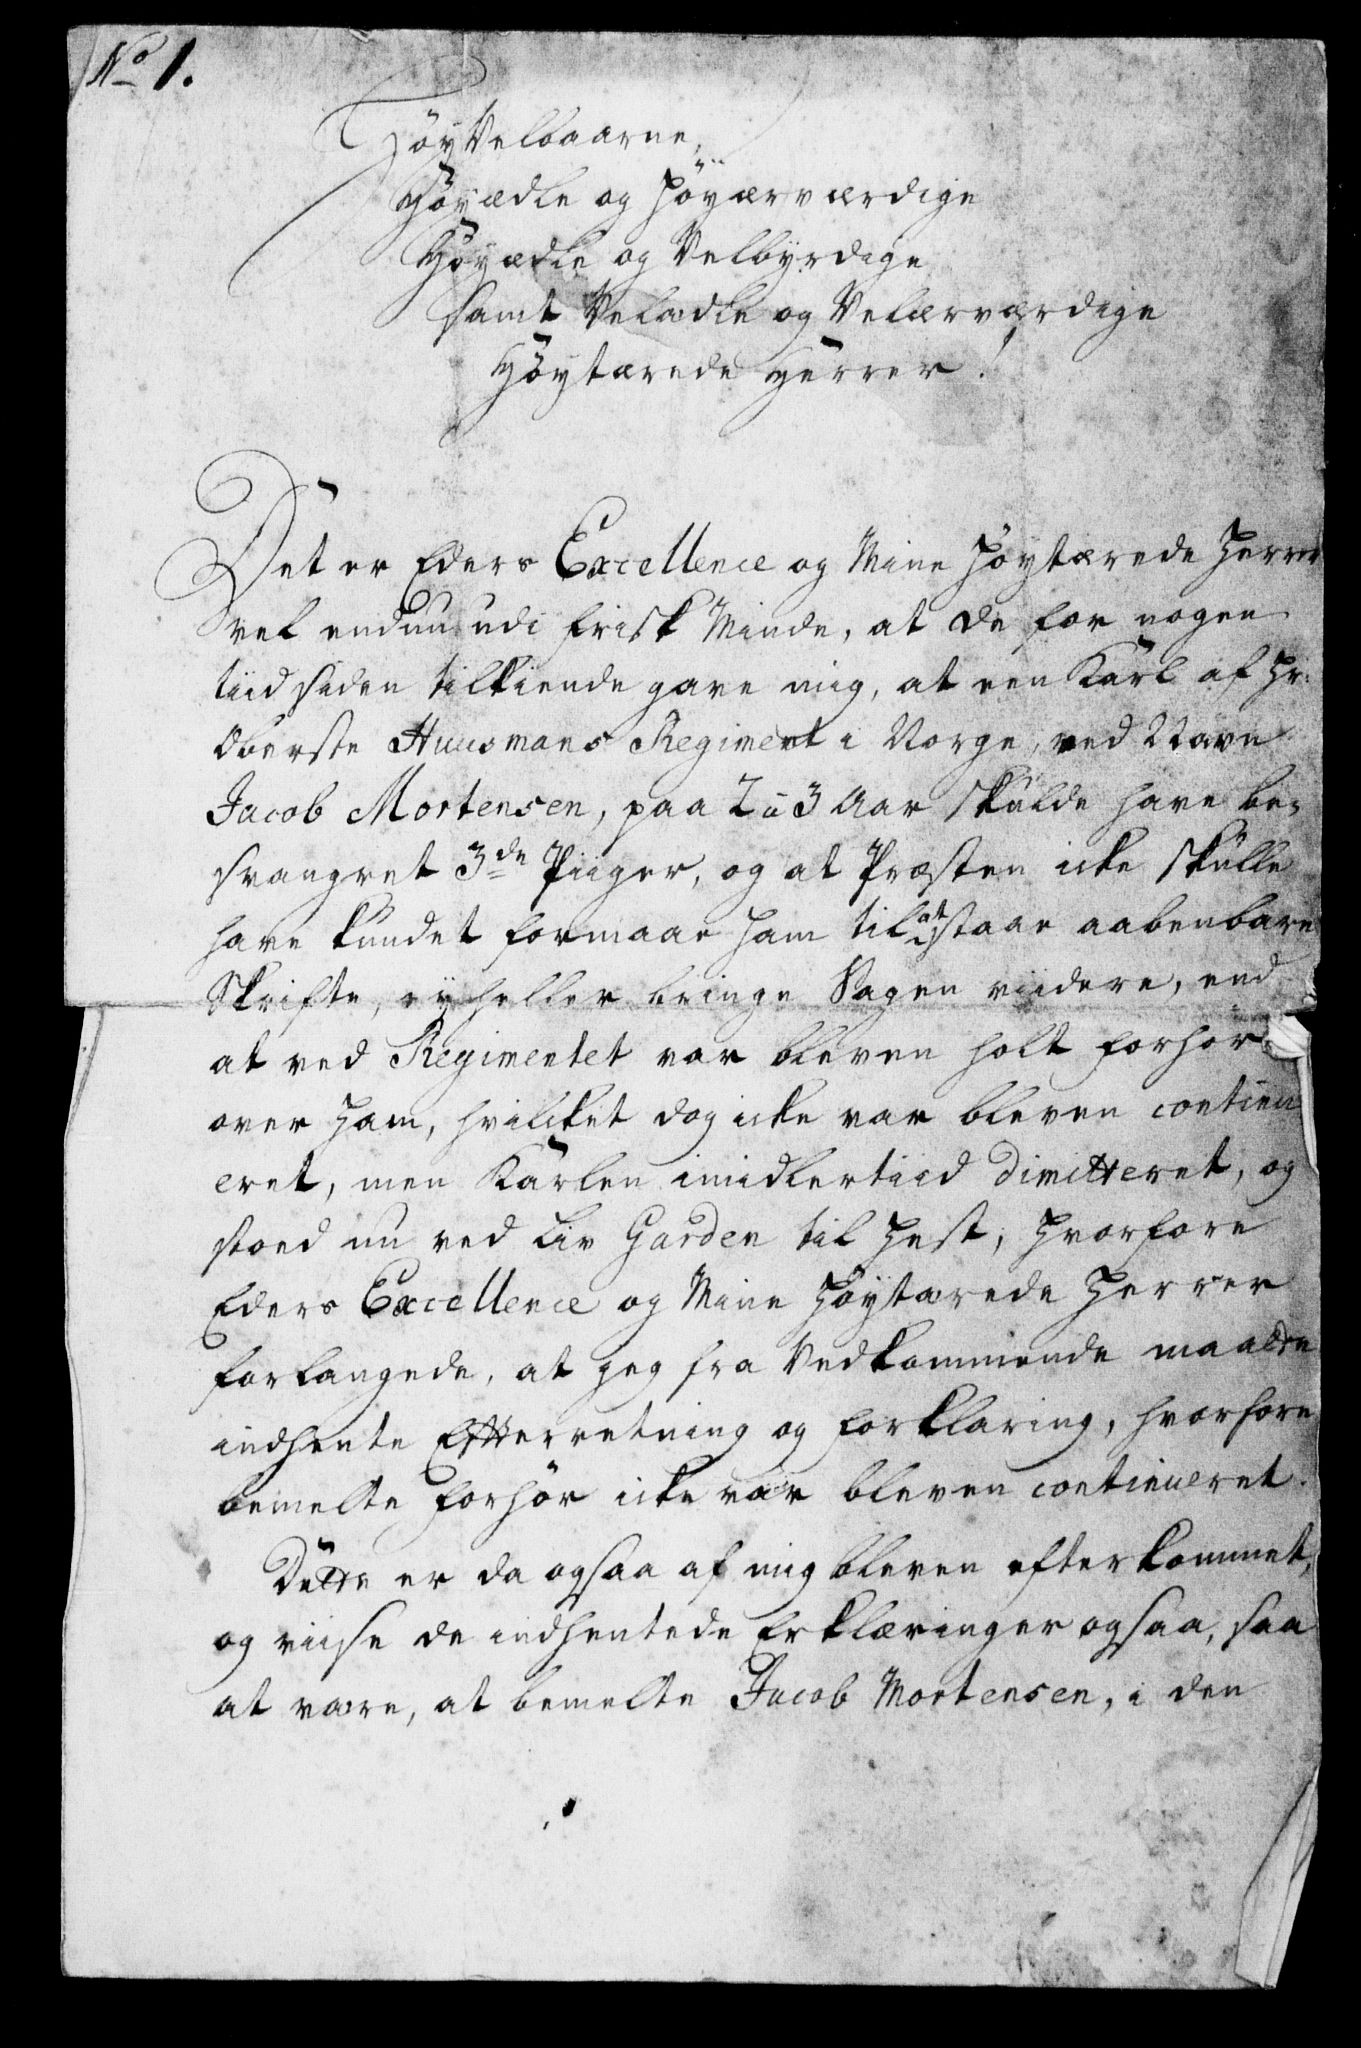 No 1.
HöyVelbaarne,
Höyædle og Höyærværdige
Höyædle og Velbyrdige
samt Velædle og Velærværdige
Höystærede Herrer!
Det er Eders Excellence og Mine Höystærede Herrer
vel endnu udi frisk Minde, at de for nogen
tiid siden tilkiende gave mig, at een Karl af Hr:
Oberste Huusmans Regiment i Norge, ved Navn
Jacob Mortensen, paa 2 à 3 Aar skulde have be-
svangret 3de Piiger, og at Præsten icke skulle
have kundet formaae ham til at staae aabenbare
Skrifte, ey heller bringe Sagen viidere, end
at ved Regimentet var bleven holt forhör
over ham, hvilcket dog icke var bleven continu
eret, men Karlen imidlertiid dimitteret, og
stoed nu ved Liv Garden til Hest, hvorfore
Eders Excellence og Mine Höystærede Herrer
forlangede, at jeg fra Vedkommende maatte
indhente Efterretning og forklaring, hvorfore
bemelte forhör icke var bleven continueret.
Dette er da ogsaa af mig bleven efterkommet,
og viise de indhentede Erklæringer ogsaa, saa
at være, at bemelte Jacob Mortensen, i den